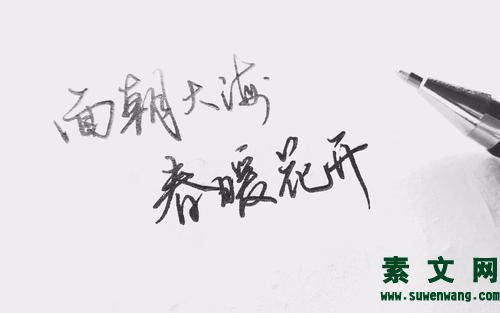 面朝大海
春暖花开
素文网
www.suwenwang.com